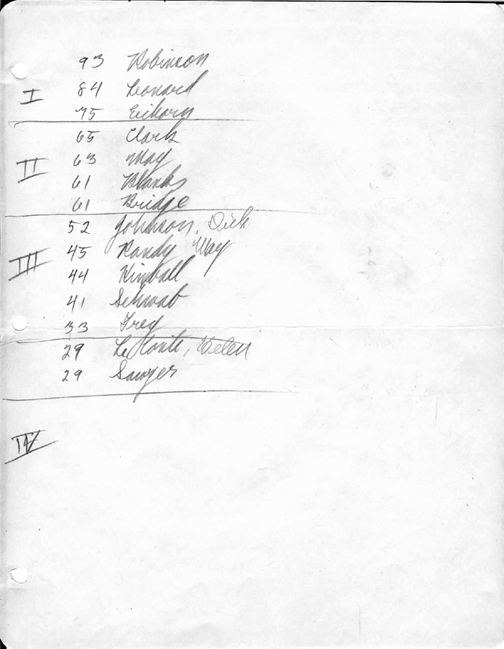 93 Robinson
I 84 Leonard
75 Eickorn
65 Clark
II 63 May
61 Blanks
61 Bridge
52 Johnson, Dick
III 45 Randy May
44 Kimball
41 Schwab
33 Grey
29 LeConte, Helen
29 Sawyer
IV